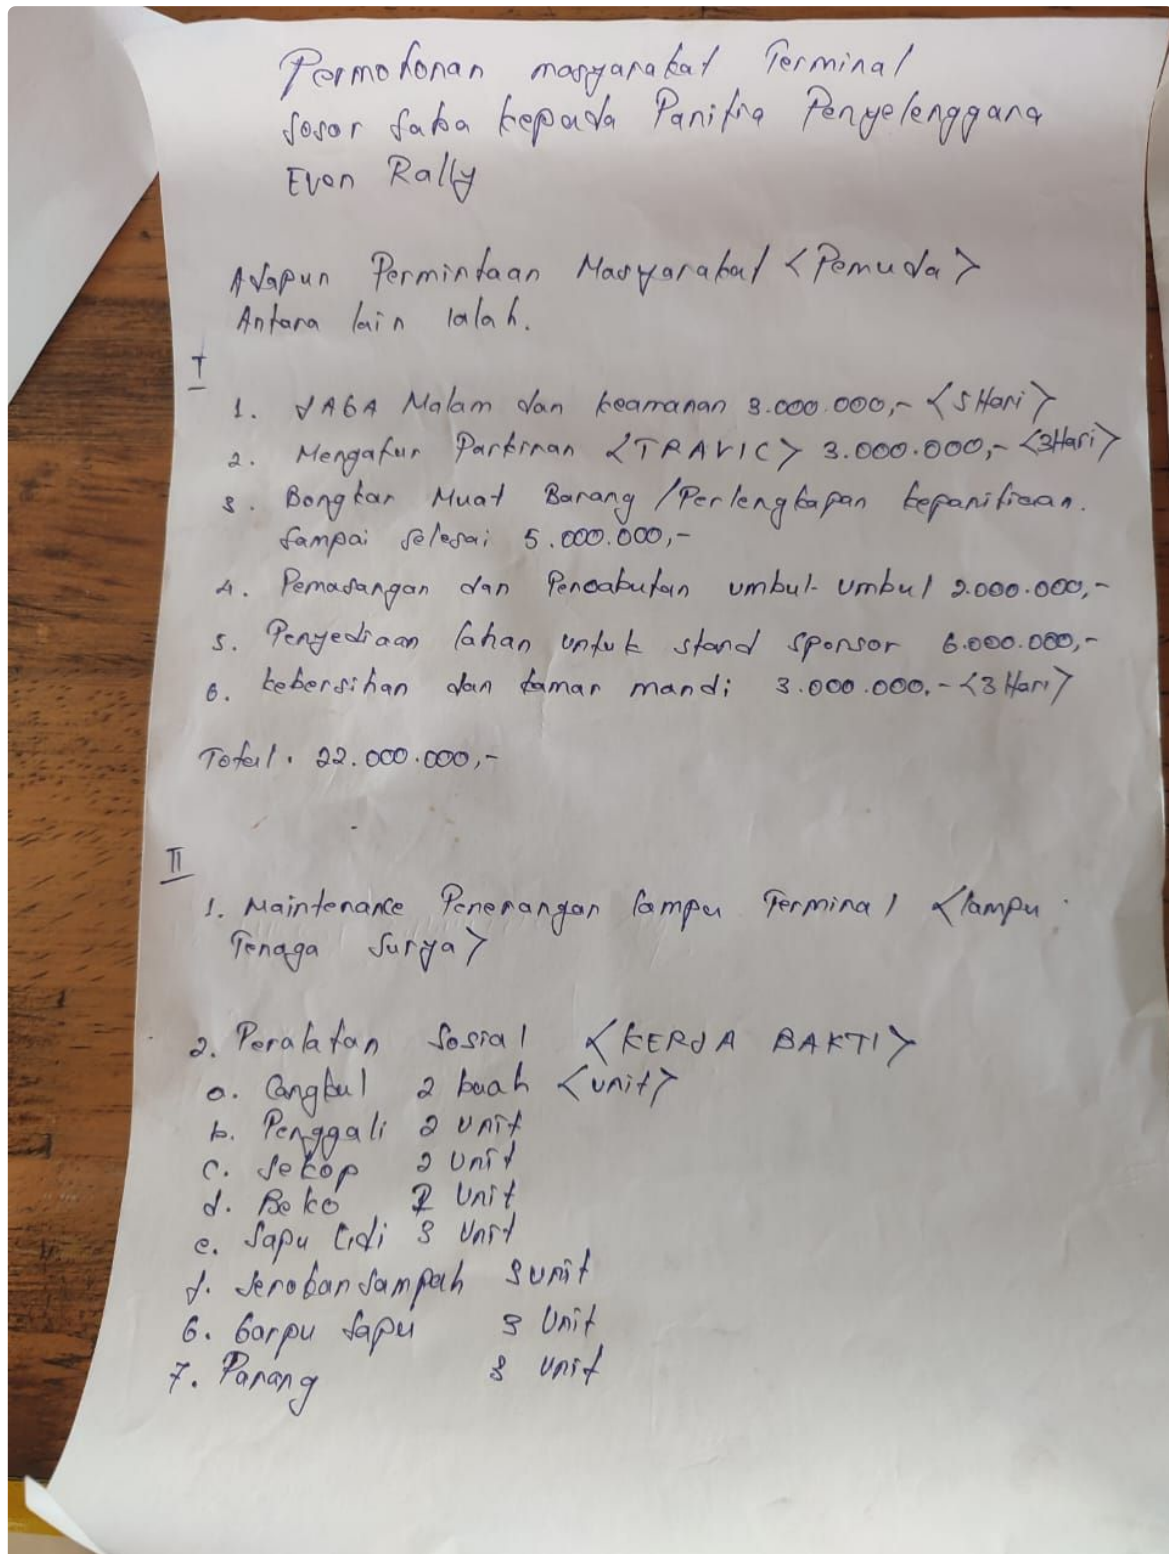 Permohonan masyarakat Terminal
Sosor Saba kepada Panitia Penyelenggara
Even Rally
Adapun Permintaan Masyarakat <Pemuda>
Antara lain Ialah.
I
1. JAGA Malam dan keamanan 3.000.000,- <5 Hari>
2. Mengatur Parkiran <TRAVIC> 3.000.000,- <3Hari>
3. Bongkar Muat Barang /Perlengkapan kepanitiaan.
Sampai Selesai 5.000.000,-
4. Pemasangan dan Pencabutan umbul-umbul 2.000.000,-
5. Penyediaan lahan untuk stand sponsor 6.000.000,-
6. kebersihan dan kamar mandi 3.000.000.- <3 Hari>
Total. 22.000.000,-
II
1. Maintenance Penerangan lampu Terminal <lampu
Tenaga Surya>
2. Peralatan Sosial <KERJA BAKTI>
a. Cangkul 2 buah <unit>
b. Penggali 2 unit
c. Sekop 2 Unit
d. Beko 2 Unit
e. Sapu Lidi 3 Unit
f. Serokan Sampah 3 unit
6. Garpu Sapu 3 Unit
7. Parang 3 unit